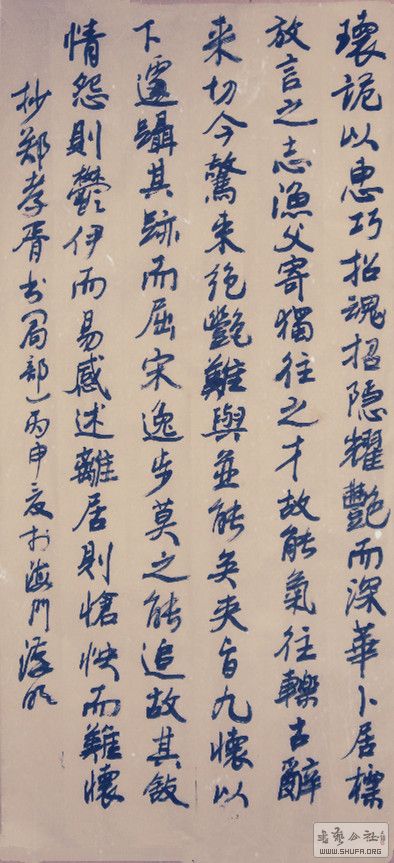 瓌詭以惠巧招魂招隐耀艷而深華卜居標
放言之志漁父寄獨往之才故能氣往轢古辭
来切今驚来絶艷難與並能矣夾旨九懷以
下遽躡其跡而屈宋逸步莫之能追故其敘
情怨則鬱伊而易感述離居則愴怏而難懷
抄郑孝胥书(局部)丙申夏於海門
书艺公社
WWW.SHUFA.ORG